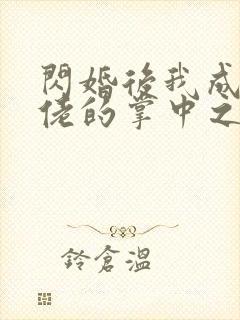 閃婚後我成
佬的掌中之
鈴倉溫